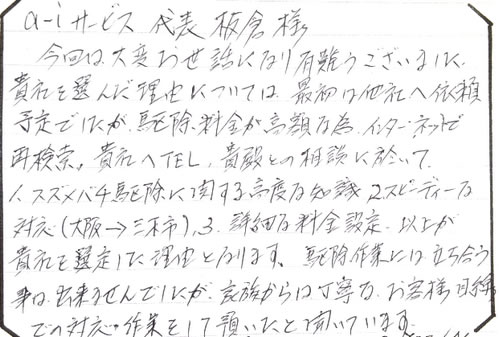 a-iサービス 代表 板倉様
今回は大変お世話になり有難うございました、
貴社を選んだ理由については、最初は他社へ依頼
予定でしたが、駆除料金が高額な為、インターネットで
再検索。貴社へTEL、貴殿との相談に於いて
1、スズメバチ駆除に関する高度な知識 2.スピーディーな
対応(大阪→三木市)、3、詳細な料金設定、以上が
貴社を選定した理由となります、駆除作業には立ち合う
事は出来ませんでしたが、家族からは丁寧な、お客様目線
での対応・作業をして頂いたと聞いています。